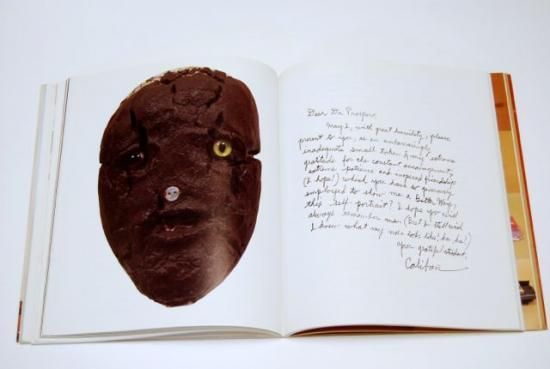 Dear Dr Prospero,
may I, with great humility, please
present to you, as an embarrassingly
inadequate small token of my extreme
gratitude for the constant encouragement,
extreme patience and inspired friendship
(I hope!) which you have so generously
employed to show me a Better Way,
this self portrait? I hope you will
always remember me. (But I still wish
I knew what my nose looks like! ha ha!)
your grateful student,
Caliban